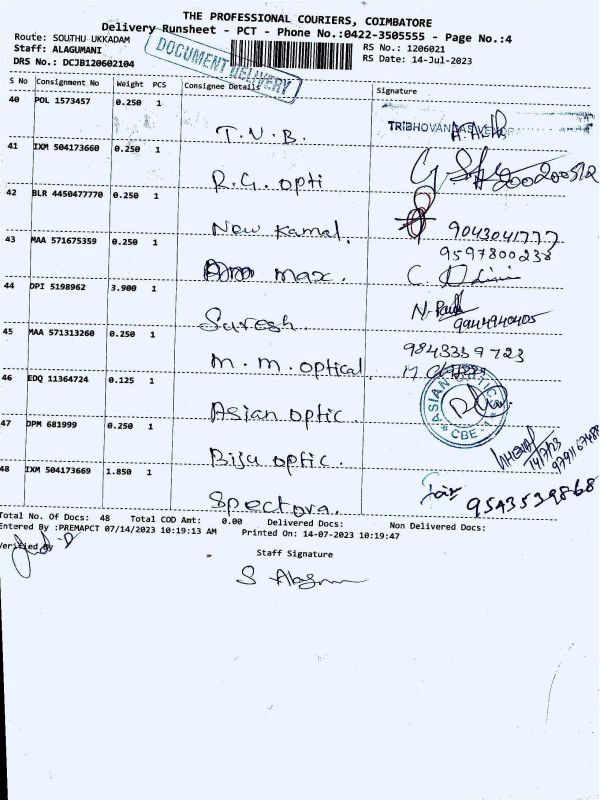 THE PROFESSIONAL COURIERS, COIMBATORE
Delivery Runsheet - PCT - Phone No.:0422-3505555 - Page No.:4
Route: SOUTHU UKKADAM
RS No.: 1206021
Staff: ALAGUMANI
RS Date: 14-Jul-2023
DRS No.: DCJB120602104
DOCUMENT DELIVERY
S No Consignment No Weight PCS Consignee Details Signature
40 POL 1573457 0.250 1
T.N.B. TRIBHOVANDAS
41 IXM 504173660 0.250 1
R.G. opti
42 BLR 4450477770 0.250 1
New Kamal. 9043041777
43 MAA 571675359 0.250 1 9597800238
max. C.
44 DPI 5198962 3.900 1
Suresh. 9944940405
45 MAA 571313260 0.250 1 9843339723
m.m.optical. M
46 EDQ 11364724 0.125 1
Asian optic. ASIAN OPTICS CBE-1
47 DPM 681999 0.250 1
Biju optic. 14/7/23
48 IXM 504173669 1.850 1
Spectora. 9543539868
Total No. Of Docs: 48 Total COD Amt: 0.00 Delivered Docs: Non Delivered Docs:
Entered By :PREMAPCT 07/14/2023 10:19:13 AM Printed On: 14-07-2023 10:19:47
Verified By
Staff Signature